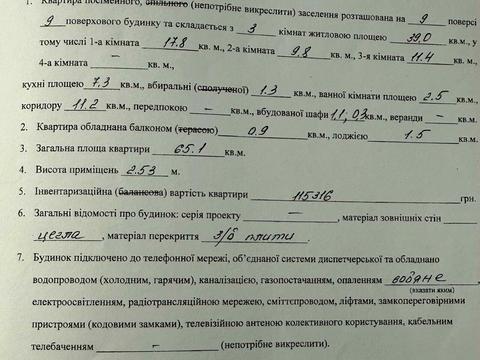 1. Квартира посімейного, спільного (непотрібне викреслити) заселення розташована на 9 поверсі
9 поверхового будинку та складається з 3 кімнат житловою площею 39,0 кв.м., у
тому числі 1-а кімната 17.8 кв. м., 2-а кімната 9.8 кв. м., 3-я кімната 11.4 кв. м.,
4-а кімната – кв. м.,
кухні площею 7.3 кв.м., вбиральні (сполученої) 1.3 кв.м., ванної кімнати площею 2.5 кв.м.,
коридору 11.2 кв.м., передпокою – кв.м., вбудованої шафи 1.1, 0.3 кв.м., веранди – кв.м.
2. Квартира обладнана балконом (терасою) 0.9 кв.м., лоджією 1.5 кв.м.
3. Загальна площа квартири 65.1 кв.м.
4. Висота приміщень 2.53 м.
5. Інвентаризаційна (балансова) вартість квартири 115316 грн.
6. Загальні відомості про будинок: серія проекту –, матеріал зовнішніх стін
цегла, матеріал перекриття з/б плити.
7. Будинок підключено до телефонної мережі, об'єднаної системи диспетчерської та обладнано
водопроводом (холодним, гарячим), каналізацією, газопостачанням, опаленням водяне
(вказати яким)
електроосвітленням, радіотрансляційною мережею, сміттєпроводом, ліфтами, замкопереговірними
пристроями (кодовими замками), телевізійною антеною колективного користування, кабельним
телебаченням – (непотрібне викреслити).